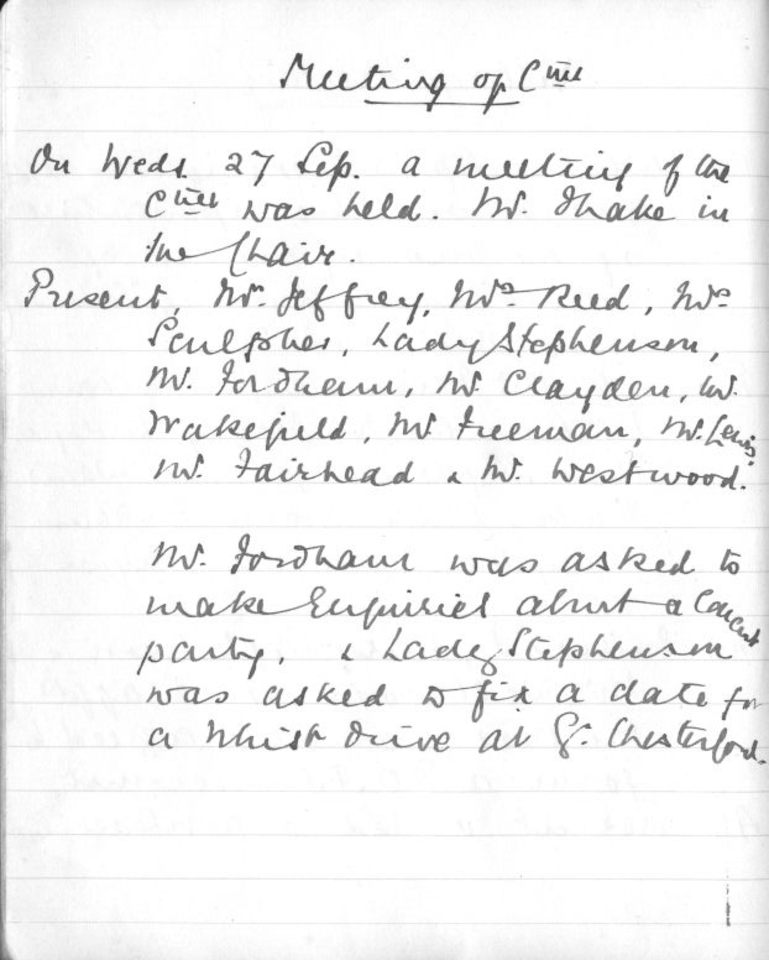 Meeting of Cttee
On Weds. 27 Sep. a meeting of the
Cttee was held. Mr. Thake in
the Chair.
Present, Mr. Jeffrey, Mrs Reed, Mrs
Sculpher, Lady Stephenson,
Mr. Fordham, Mr. Clayden, Mr.
Wakefield, Mr Freeman, Mr. Lewis,
Mr. Fairhead & Mr. Westwood.
Mr. Fordham was asked to
make Enquiries about a Concert
party, & Lady Stephenson
was asked to fix a date for
a Whist Drive at Gt. Chesterford.